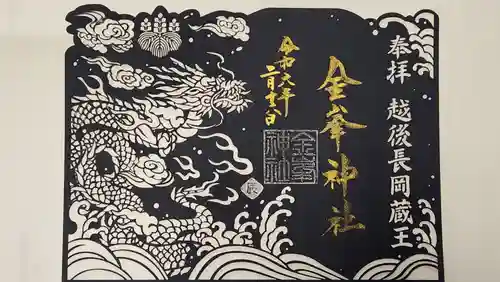 奉拝 越後長岡蔵王
金峯神社
令和六年
二月十六日
金峯
神社
辰